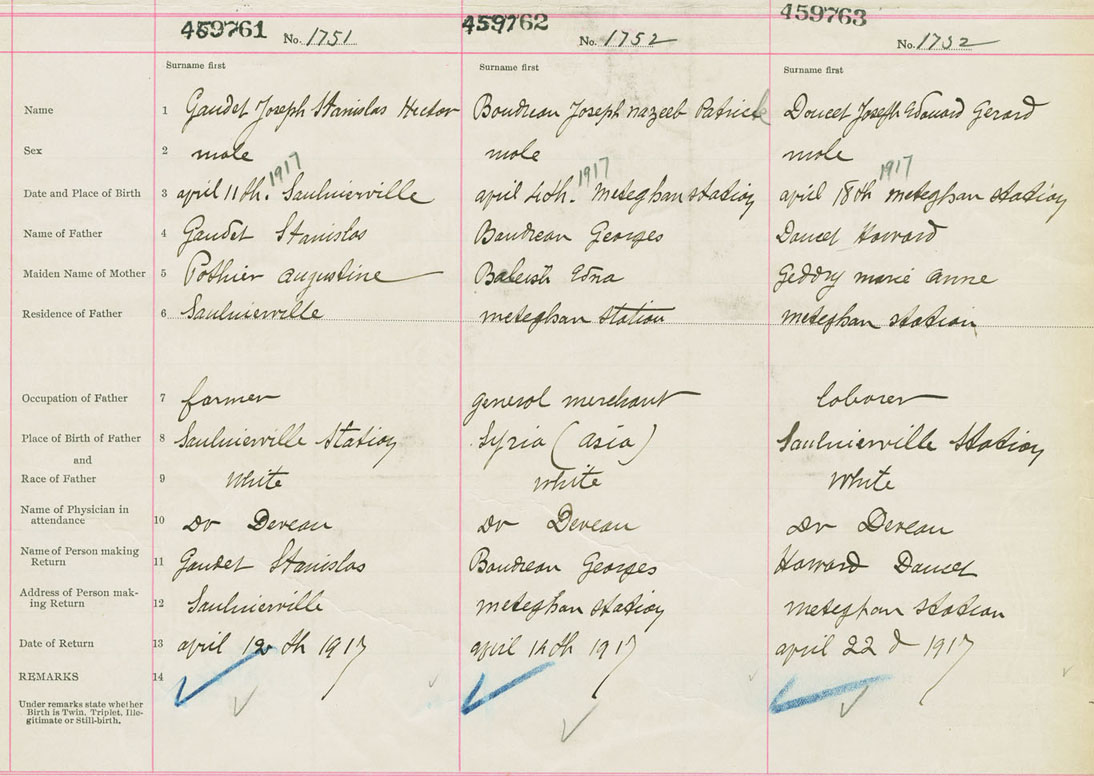 459761 No. 1751 459762 No. 1752 459763 No. 1752
Surname first Surname first Surname first
Name 1 Gaudet Joseph Stanislas Hector Boudreau Joseph nazeeb Patrick Doucet Joseph Edouard Gerard
Sex 2 male male male
1917 1917 1917
Date and Place of Birth 3 april 11th. Saulnierville april 4th. meteghan station april 18th meteghan station
Name of Father 4 Gaudet Stanislas Boudreau Georges Doucet Howard
Maiden Name of Mother 5 Pothier augustine Edna Geddry marie anne
Residence of Father 6 Saulnierville meteghan station meteghan station
Occupation of Father 7 farmer general merchant laborer
Place of Birth of Father 8 Saulnierville Station Syria (asia) Saulnierville Station
and
Race of Father 9 White white White
Name of Physician in
attendance 10 Dr Deveau Dr Deveau Dr Deveau
Name of Person making
Return 11 Gaudet Stanislas Boudreau Georges Howard Doucet
Address of Person mak-
ing Return 12 Saulnierville meteghan station meteghan station
Date of Return 13 april 12th 1917 april 14th 1917 april 22d 1917
REMARKS 14
Under remarks state whether
Birth is Twin, Triplet, Ille-
gitimate or Still-birth.